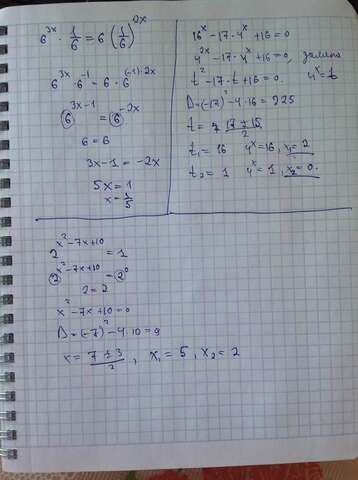 6^{3x} · 1/6 = 6 (1/6)^{2x}
6^{3x} · 6^{-1} = 6 · 6^{(-1)·2x}
6^{3x-1} = 6^{-2x}
6 = 6
3x-1 = -2x
5x = 1
x = 1/5
16^x - 17·4^x + 16 = 0
4^{2x} - 17·4^x + 16 = 0, замена
t^2 - 17·t + 16 = 0. 4^x = t
D = (-17)^2 - 4·16 = 225
t = (17 ± 15)/2
t_1 = 16 4^x = 16, x_1 = 2
t_2 = 1 4^x = 1, x_2 = 0.
2^{x^2-7x+10} = 1
2^{x^2-7x+10} = 2^0
2 = 2
x^2 - 7x + 10 = 0
D = (-7)^2 - 4·10 = 9
x = (7 ± 3)/2, x_1 = 5, x_2 = 2